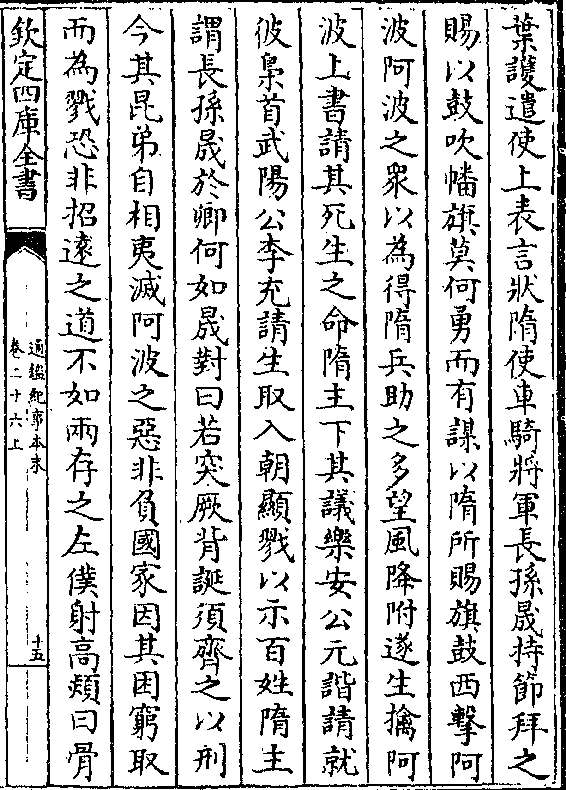 葉護遣使上表言狀隋使車騎將軍長孫晟持節拜之
賜以鼓吹幡旗莫何勇而有謀以隋所賜旗鼓西擊阿
波阿波之眾以為得隋兵助之多望風降附遂生擒阿
波上書請其死生之命隋主下其議樂安公元諧請就
彼梟首武陽公李充請生取入朝顯戮以示百姓隋主
謂長孫晟於卿何如晟對曰若突厥背誕須齊之以刑
今其昆弟自相夷滅阿波之惡非負國家因其困窮取
而為戮恐非招遠之道不如兩存之左僕射高熲曰骨
欽定四庫全書
通鑑紀事本末
卷二十六上
十五